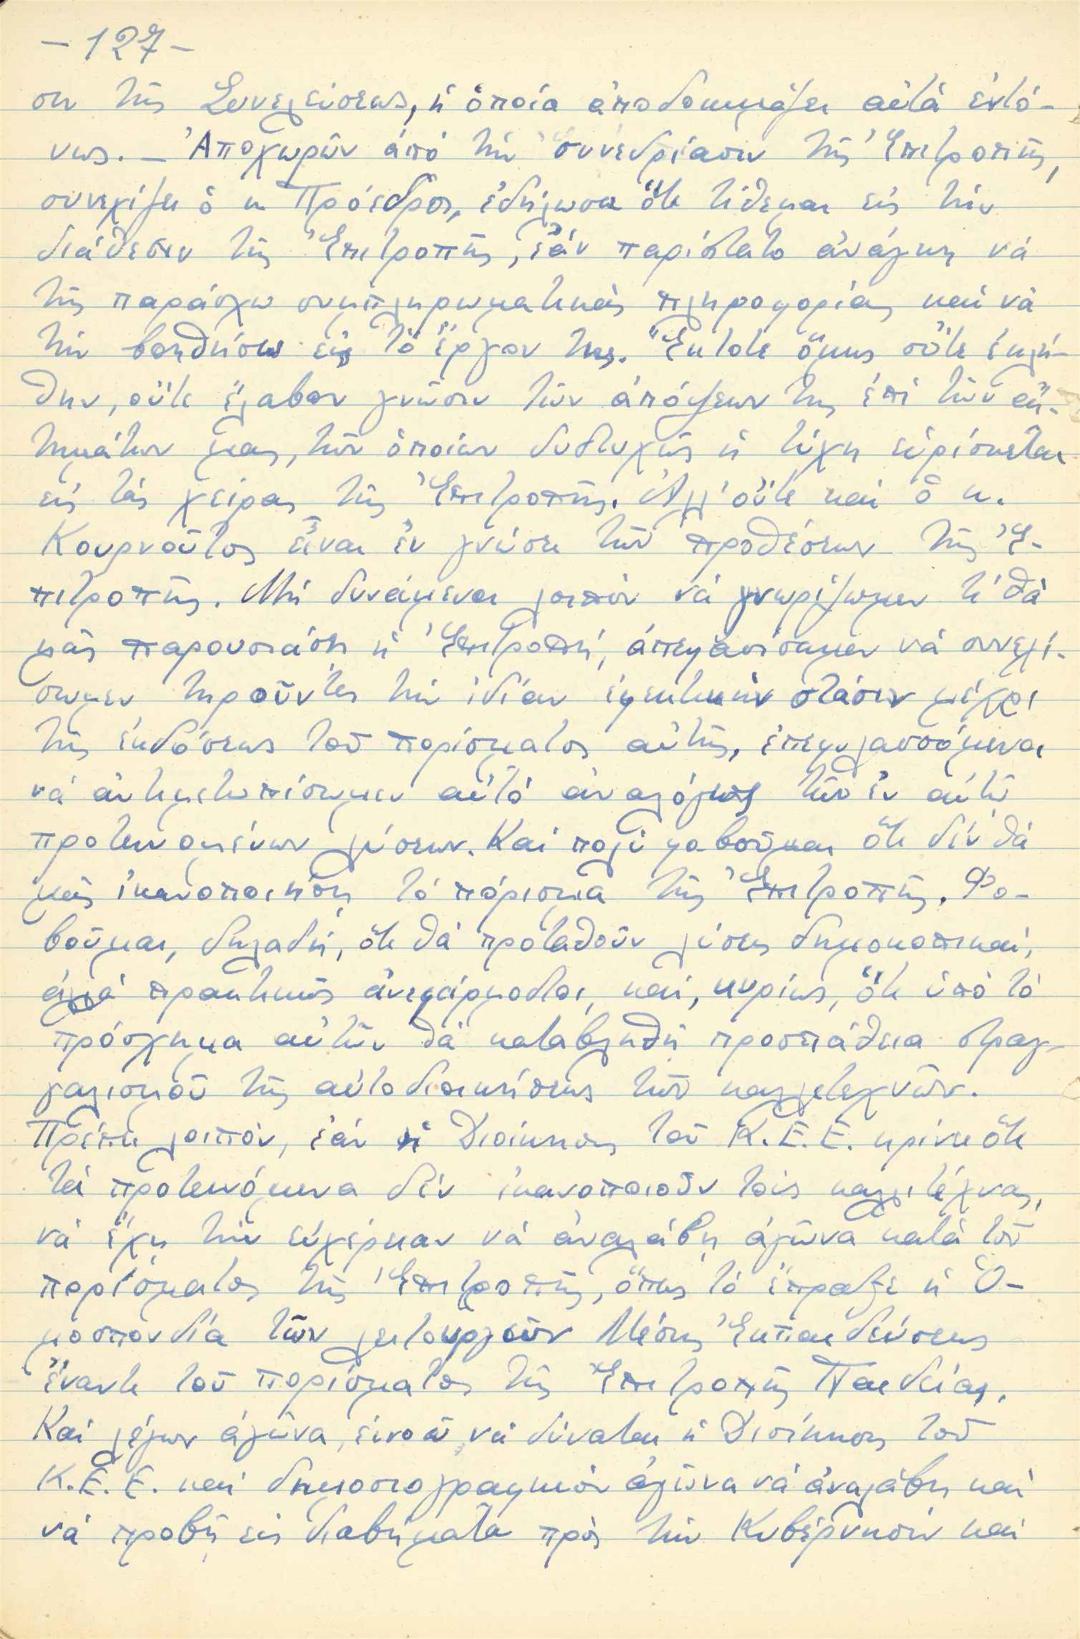 - 127 -
σιν τῆς Συνελεύσεως, ἡ ὁποία ἀποδοκιμάζει αὐτά ἐντό-
νως. — Ἀποχωρῶν ἀπό τήν συνεδρίασιν τῆς Ἐπιτροπῆς,
συνεχίζει ὁ κ. Πρόεδρος, ἐδήλωσα ὅτι τίθεμαι εἰς τήν
διάθεσιν τῆς Ἐπιτροπῆς, ἐάν παρίστατο ἀνάγκη νά
τῆς παράσχω συμπληρωματικάς πληροφορίας καί νά
τήν βοηθήσω εἰς τό ἔργον της. Ἔκτοτε ὅμως οὔτε ἐκλή-
θην, οὔτε ἔλαβον γνῶσιν τῶν ἀπόψεων της ἐπί τῶν αἰ-
τημάτων μας, τῶν ὁποίων δυστυχῶς ἡ τύχη εὑρίσκεται
εἰς τάς χεῖρας τῆς Ἐπιτροπῆς. Ἀλλ' οὔτε καί ὁ κ.
Κουρνοῦτος εἶναι ἐν γνώσει τῶν προθέσεων τῆς Ἐ-
πιτροπῆς. Μή δυνάμενοι λοιπόν νά γνωρίζωμεν τί θά
μᾶς παρουσιάσῃ ἡ Ἐπιτροπή, ἀπεφασίσαμεν νά συνεχί-
σωμεν τηροῦντες τήν ἰδίαν ἐφεκτικήν στάσιν μέχρι
τῆς ἐκδόσεως τοῦ πορίσματος αὐτῆς, ἐπιφυλασσόμενοι
νά ἀντιμετωπίσωμεν αὐτό ἀναλόγως τῶν ἐν αὐτῷ
προτεινομένων λύσεων. Καί πολύ φοβοῦμαι ὅτι δέν θά
μᾶς ἱκανοποιήσῃ τό πόρισμα τῆς Ἐπιτροπῆς. Φο-
βοῦμαι, δηλαδή, ὅτι θά προταθοῦν λύσεις δημοκοπικαί,
ἀλλά πρακτικῶς ἀνεφάρμοστοι, καί, κυρίως, ὅτι ὑπό τό
πρόσχημα αὐτῶν θά καταβληθῇ προσπάθεια στραγ-
γαλισμοῦ τῆς αὐτοδιοικήσεως τῶν καλλιτεχνῶν.
Πρέπει λοιπόν, ἐάν ἡ Διοίκησις τοῦ Κ.Ε.Ε. κρίνῃ ὅτι
τά προτεινόμενα δέν ἱκανοποιοῦν τούς καλλιτέχνας,
νά ἔχῃ τήν εὐχέρειαν νά ἀναλάβῃ ἀγῶνα κατά τοῦ
πορίσματος τῆς Ἐπιτροπῆς, ὅπως τό ἔπραξε ἡ Ὁ-
μοσπονδία τῶν λειτουργῶν Μέσης Ἐκπαιδεύσεως
ἔναντι τοῦ πορίσματος τῆς Ἐπιτροπῆς Παιδείας.
Καί λέγων ἀγῶνα, ἐννοῶ νά δύναται ἡ Διοίκησις τοῦ
Κ.Ε.Ε. καί δημοσιογραφικόν ἀγῶνα νά ἀναλάβῃ καί
νά προβῇ εἰς διαβήματα πρός τήν Κυβέρνησιν καί